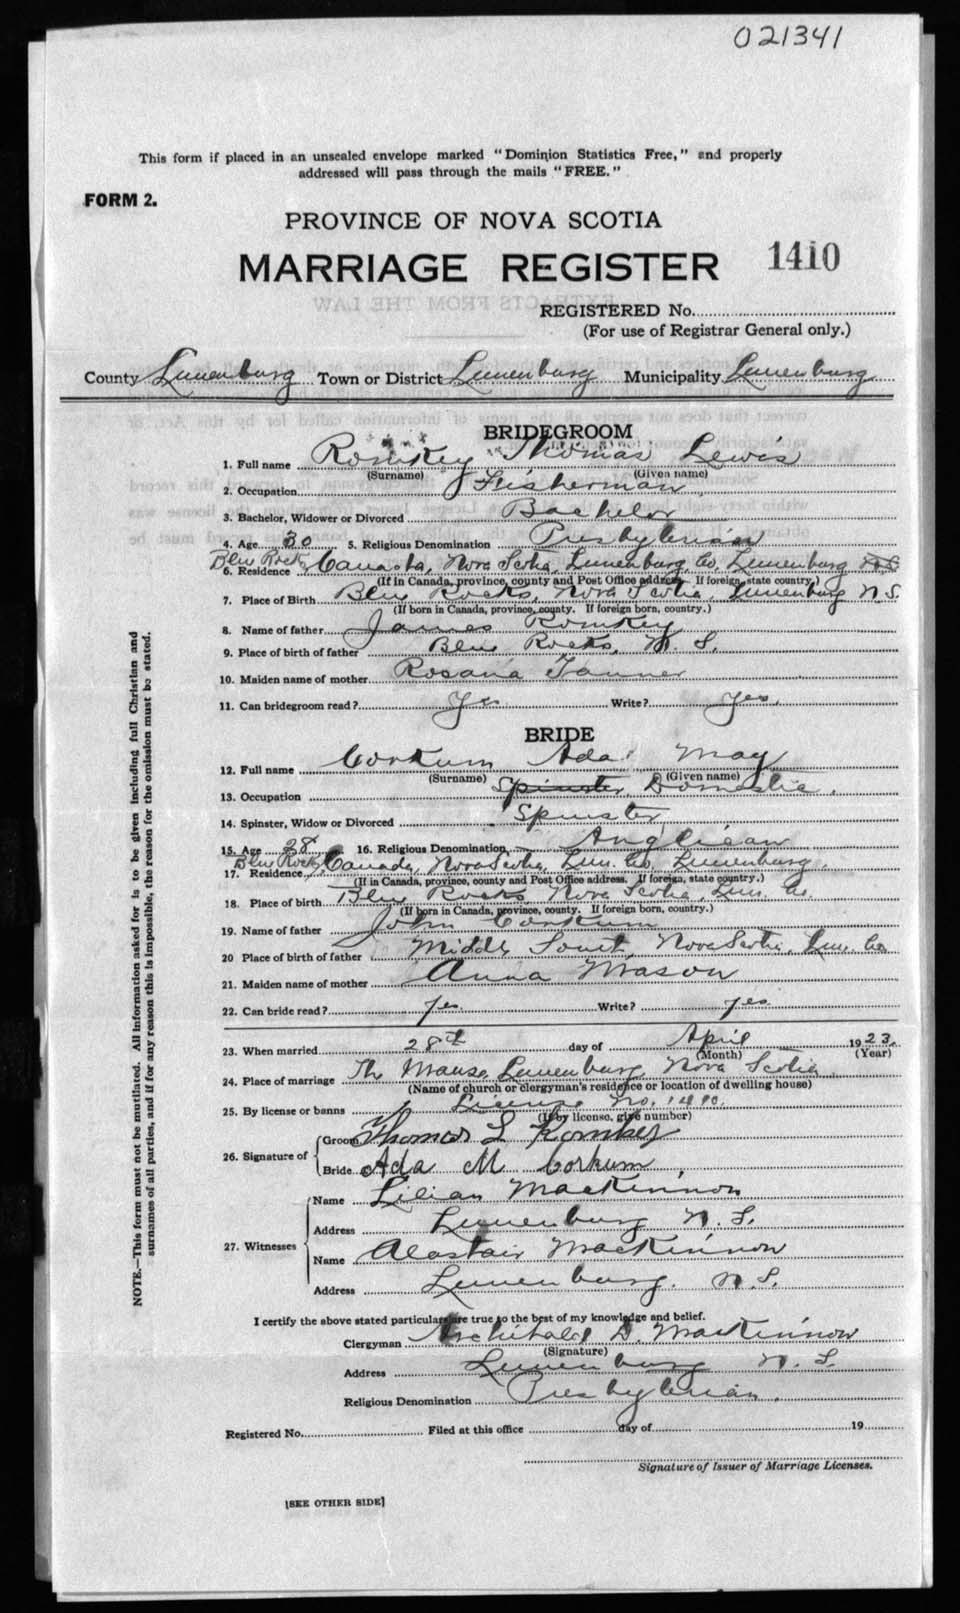 021341
This form if placed in an unsealed envelope marked "Dominion Statistics Free," and properly
addressed will pass through the mails "FREE."
FORM 2.
PROVINCE OF NOVA SCOTIA
MARRIAGE REGISTER 1410
EXTRACTS FROM THE LAW
REGISTERED No.
(For use of Registrar General only.)
County Lunenburg Town or District Lunenburg Municipality Lunenburg
BRIDEGROOM
1. Full name Romkey Thomas Lewis
(Surname) (Given name)
2. Occupation Fisherman
3. Bachelor, Widower or Divorced Bachelor
4. Age 30 5. Religious Denomination Presbyterian
6. Residence Blue Rocks Canada, Nova Scotia, Lunenburg Co, Lunenburg
(If in Canada, province, county and Post Office address. If foreign, state country.)
7. Place of Birth Blue Rocks, Nova Scotia, Lunenburg N.S.
(If born in Canada, province, county. If foreign born, country.)
8. Name of father James Romkey
9. Place of birth of father Blue Rocks, N. S.
10. Maiden name of mother Rosana Tanner
11. Can bridegroom read? Yes Write? Yes.
BRIDE
12. Full name Corkum Ada May
(Surname) (Given name)
13. Occupation Spinster Domestic.
14. Spinster, Widow or Divorced Spinster
15. Age 28 16. Religious Denomination Anglican
17. Residence Blue Rocks Canada, Nova Scotia, Lun. Co, Lunenburg
(If in Canada, province, county and Post Office address. If foreign, state country.)
18. Place of birth Blue Rocks, Nova Scotia, Lun. Co.
(If born in Canada, province, county. If foreign born, country.)
19. Name of father John Corkum
20 Place of birth of father Middle South, Nova Scotia, Lun. Co
21. Maiden name of mother Anna Mason
22. Can bride read? yes Write? yes
23. When married 28th day of April 1923.
(Month) (Year)
24. Place of marriage The Manse, Lunenburg Nova Scotia
(Name of church or clergyman's residence or location of dwelling house)
25. By license or banns License No. 1410.
(If by license, give number)
26. Signature of Groom Thomas L Romkey
Bride Ada M Corkum
27. Witnesses Name Lilian MacKinnon
Address Lunenburg N. S.
Name Alastair MacKinnon
Address Lunenburg. N.S.
I certify the above stated particulars are true to the best of my knowledge and belief.
Clergyman Archibald D. MacKinnon
(Signature)
Address Lunenburg N. S.
Religious Denomination Presbyterian.
Registered No. Filed at this office day of 19
Signature of Issuer of Marriage Licenses.
[SEE OTHER SIDE]
NOTE.—This form must not be mutilated. All information asked for is to be given including full Christian and
surnames of all parties, and if for any reason this is impossible, the reason for the omission must be stated.